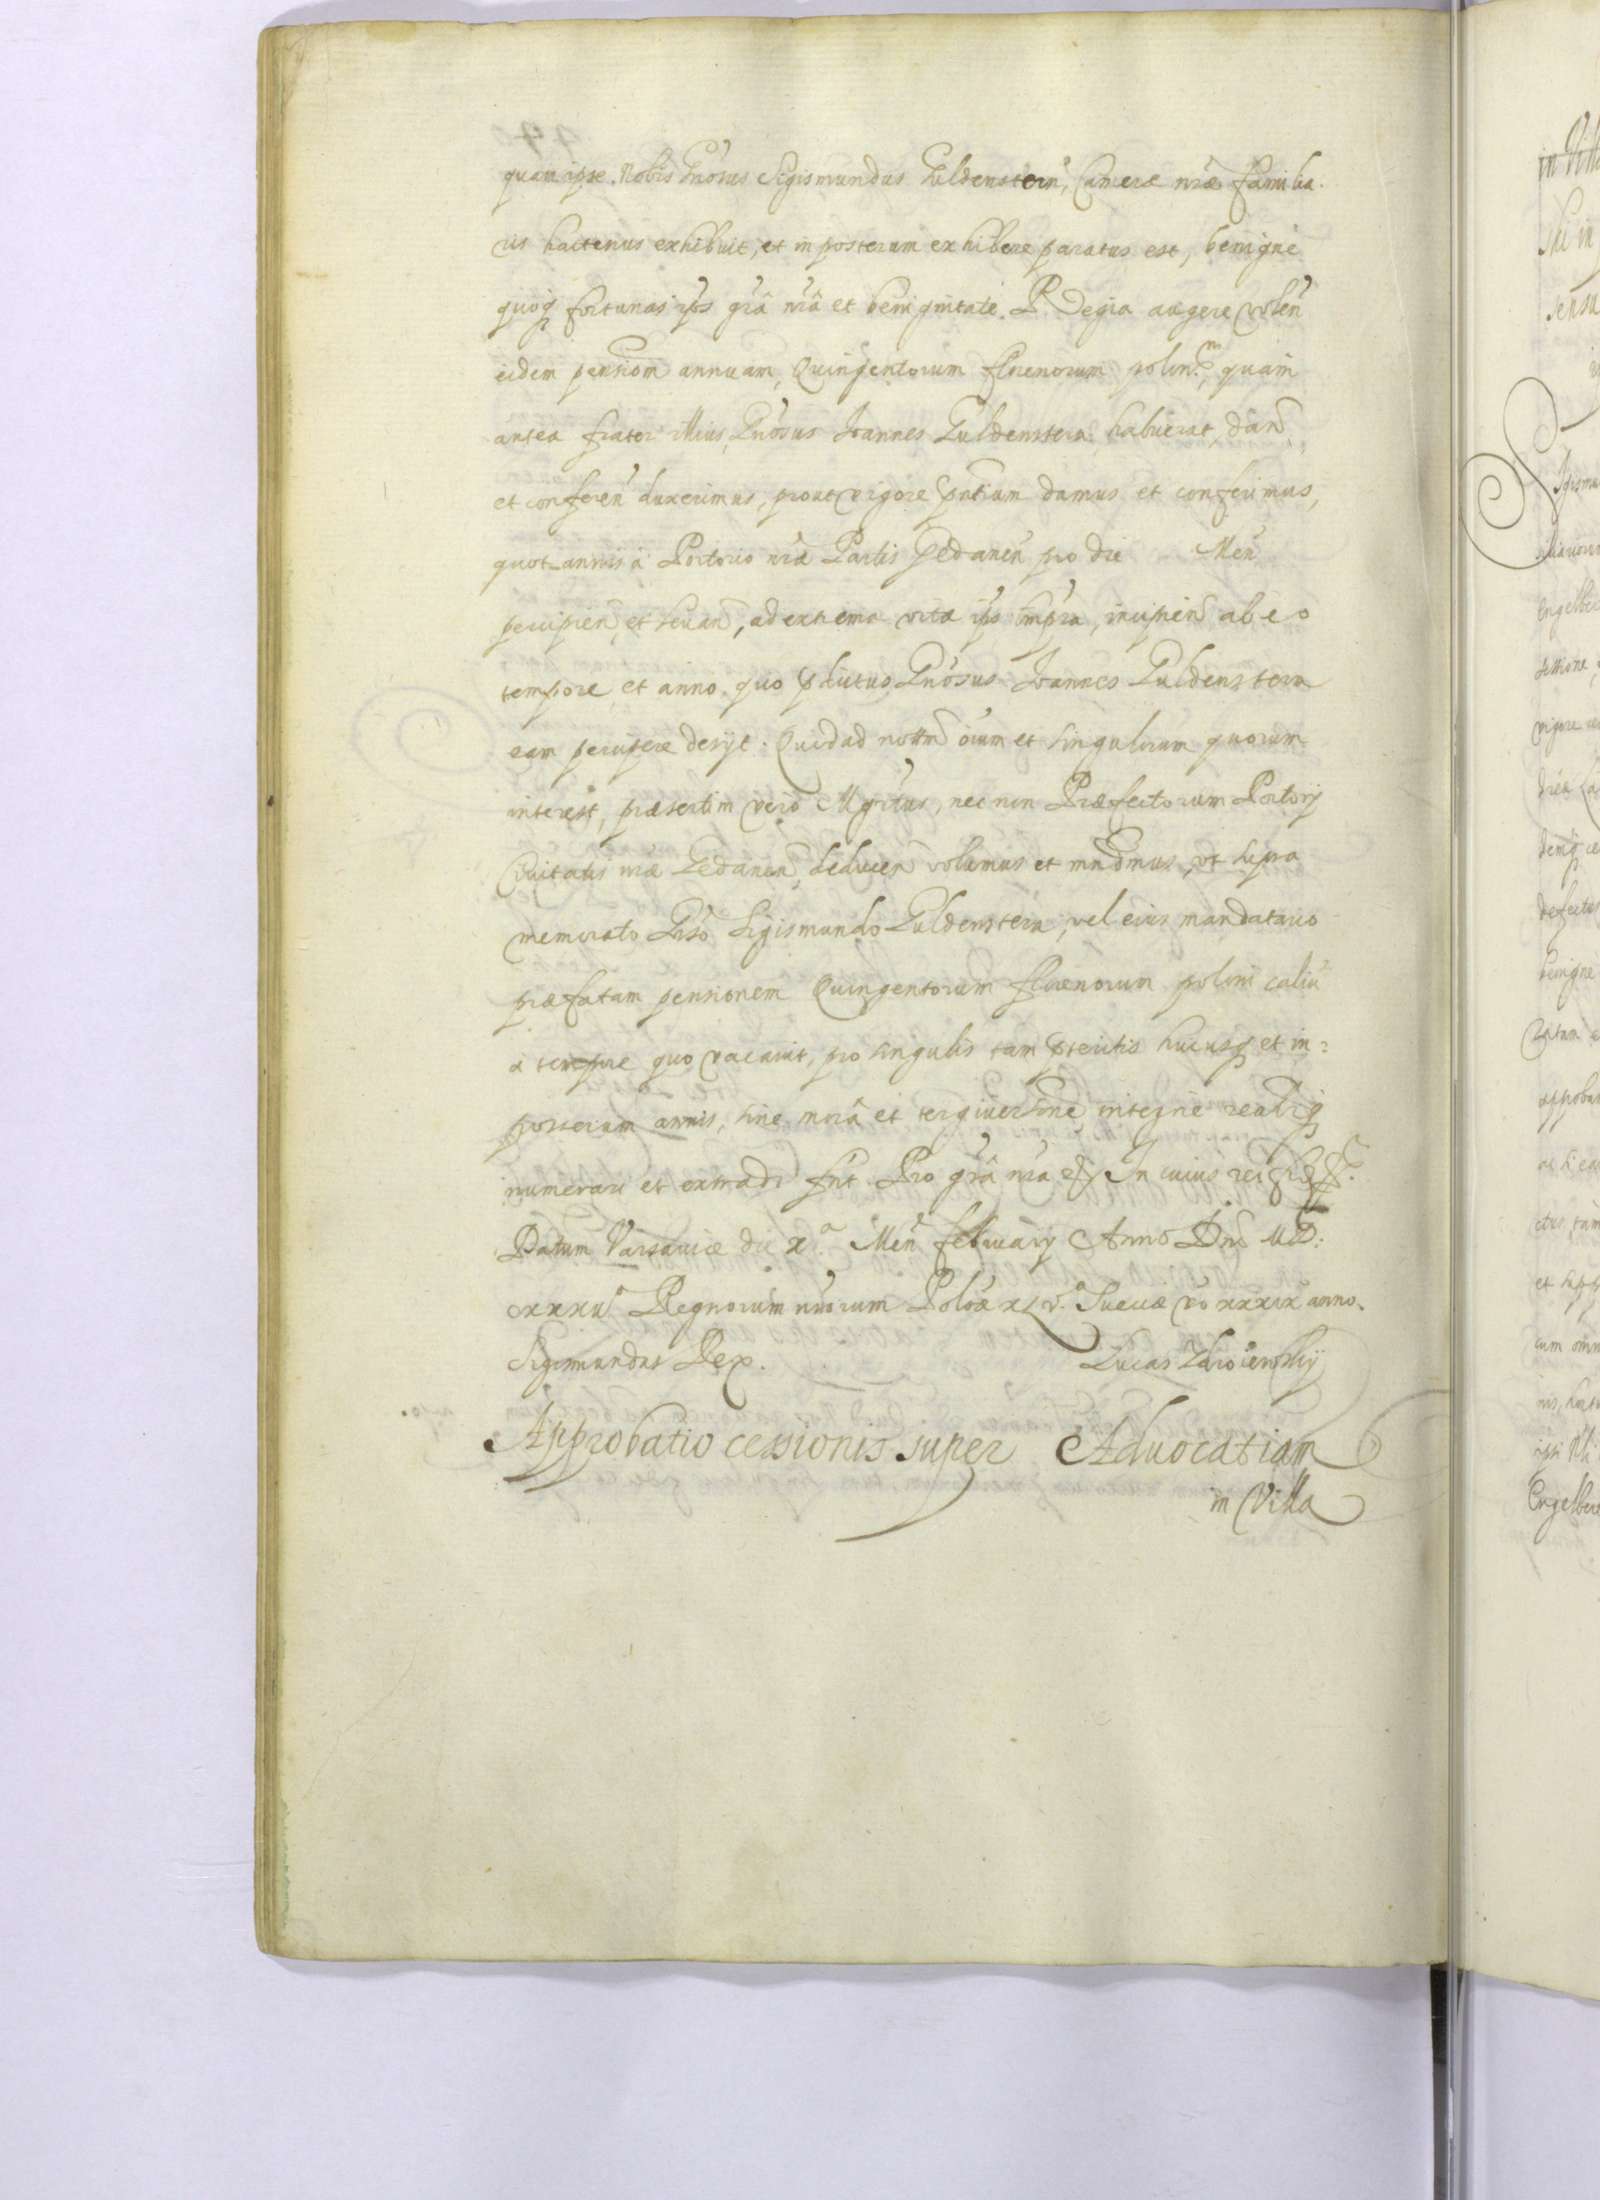 quam ipse Nobis Gnósus Sigismundus Guldenstern, Cameræ nræ familia-
ris hactenus exhibuit, et in posterum exhibere paratus est, benigné
quoq fortunas ips grâ nrâ et benignitate Regia augere volen
eidem pensiom annuam, Quingentorum florenorum polon, quam
antea frater illius, Gnósus Joannes Guldenstern habuerat, dan
et conferen duxerimus, prout vigore pntium damus et conferimus,
quot annis à Portorio nræ Partis Gedanen pro die Men
percipien et levan, ad extrema vitæ ips tempra, incipien ab eo
tempore et anno quo pdictus Gnósus Joannes Guldenstern
eam percipere desijt. Quod ad nottm oium et singulorum quorum
interest, præsertim vero Mgrtus, nec non Præfectorum Portorij
Civitatis nræ Gedanen, deducen volumus et mndmus, vt supra
memorato Gnso Sigismundo Guldenstern, vel eius mandatario
præfatam pensionem Quingentorum florenorum poloni
à tempore quo vacavit, pro singulis tam pteritis hucusq et in=
posterum annis, sine morâ et tergiversine integre realirq
numerari et extradi fnt. Pro grâ nra In cuius rei fid
Datum Varsaviæ die x.ª Men February Anno Dni MD:
cxxxii Regnorum nrorum Polóæ xLv. Sueciæ vo xxxix anno.
Sigismundus Rex. Lucas
Approbatio cessionis super Advocatiam
in Villa